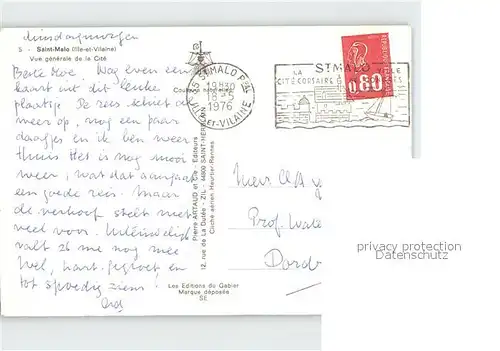 dinsdagmorgen
5 - Saint-Malo (Ille-et-Vilaine)
Vue générale de la Cité
Beste Moe. Nog even een
kaart uit dit leuke
plaatsje. De reis schiet al
meer op, nog een paar
daagjes en ik ben weer
thuis. Het is nog mooi
weer, wat dat aangaat
een goede reis. Maar
de verkoop stelt niet
veel voor.
valt me nog mee
Wel, hart. groeten en
tot spoedig ziens!
35 ST MALO PPAL
19H30
18-5
1976
ILLE-ET-VILAINE
ST MALO
LA VILLE
CITÉ CORSAIRE
0,80
Pierre ARTAUD et Cie - Editeurs
12, rue de La Dutée - ZIL - 44800 SAINT-HERBLAIN
Cliché aérien Heurtier-Rennes
Prof.
Dord
privacy protection
Datenschutz
Les Editions du Gabier
Marque déposée
SE